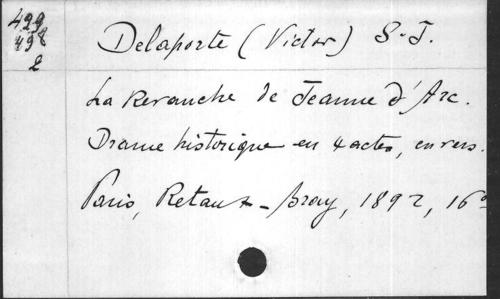 499
498
2
Delaporte (Victor) S.J.
La Revanche de Jeanne d'Arc.
Drame historique en 4 actes, en vers.
Paris, Retaux-Bray, 1892, 16°